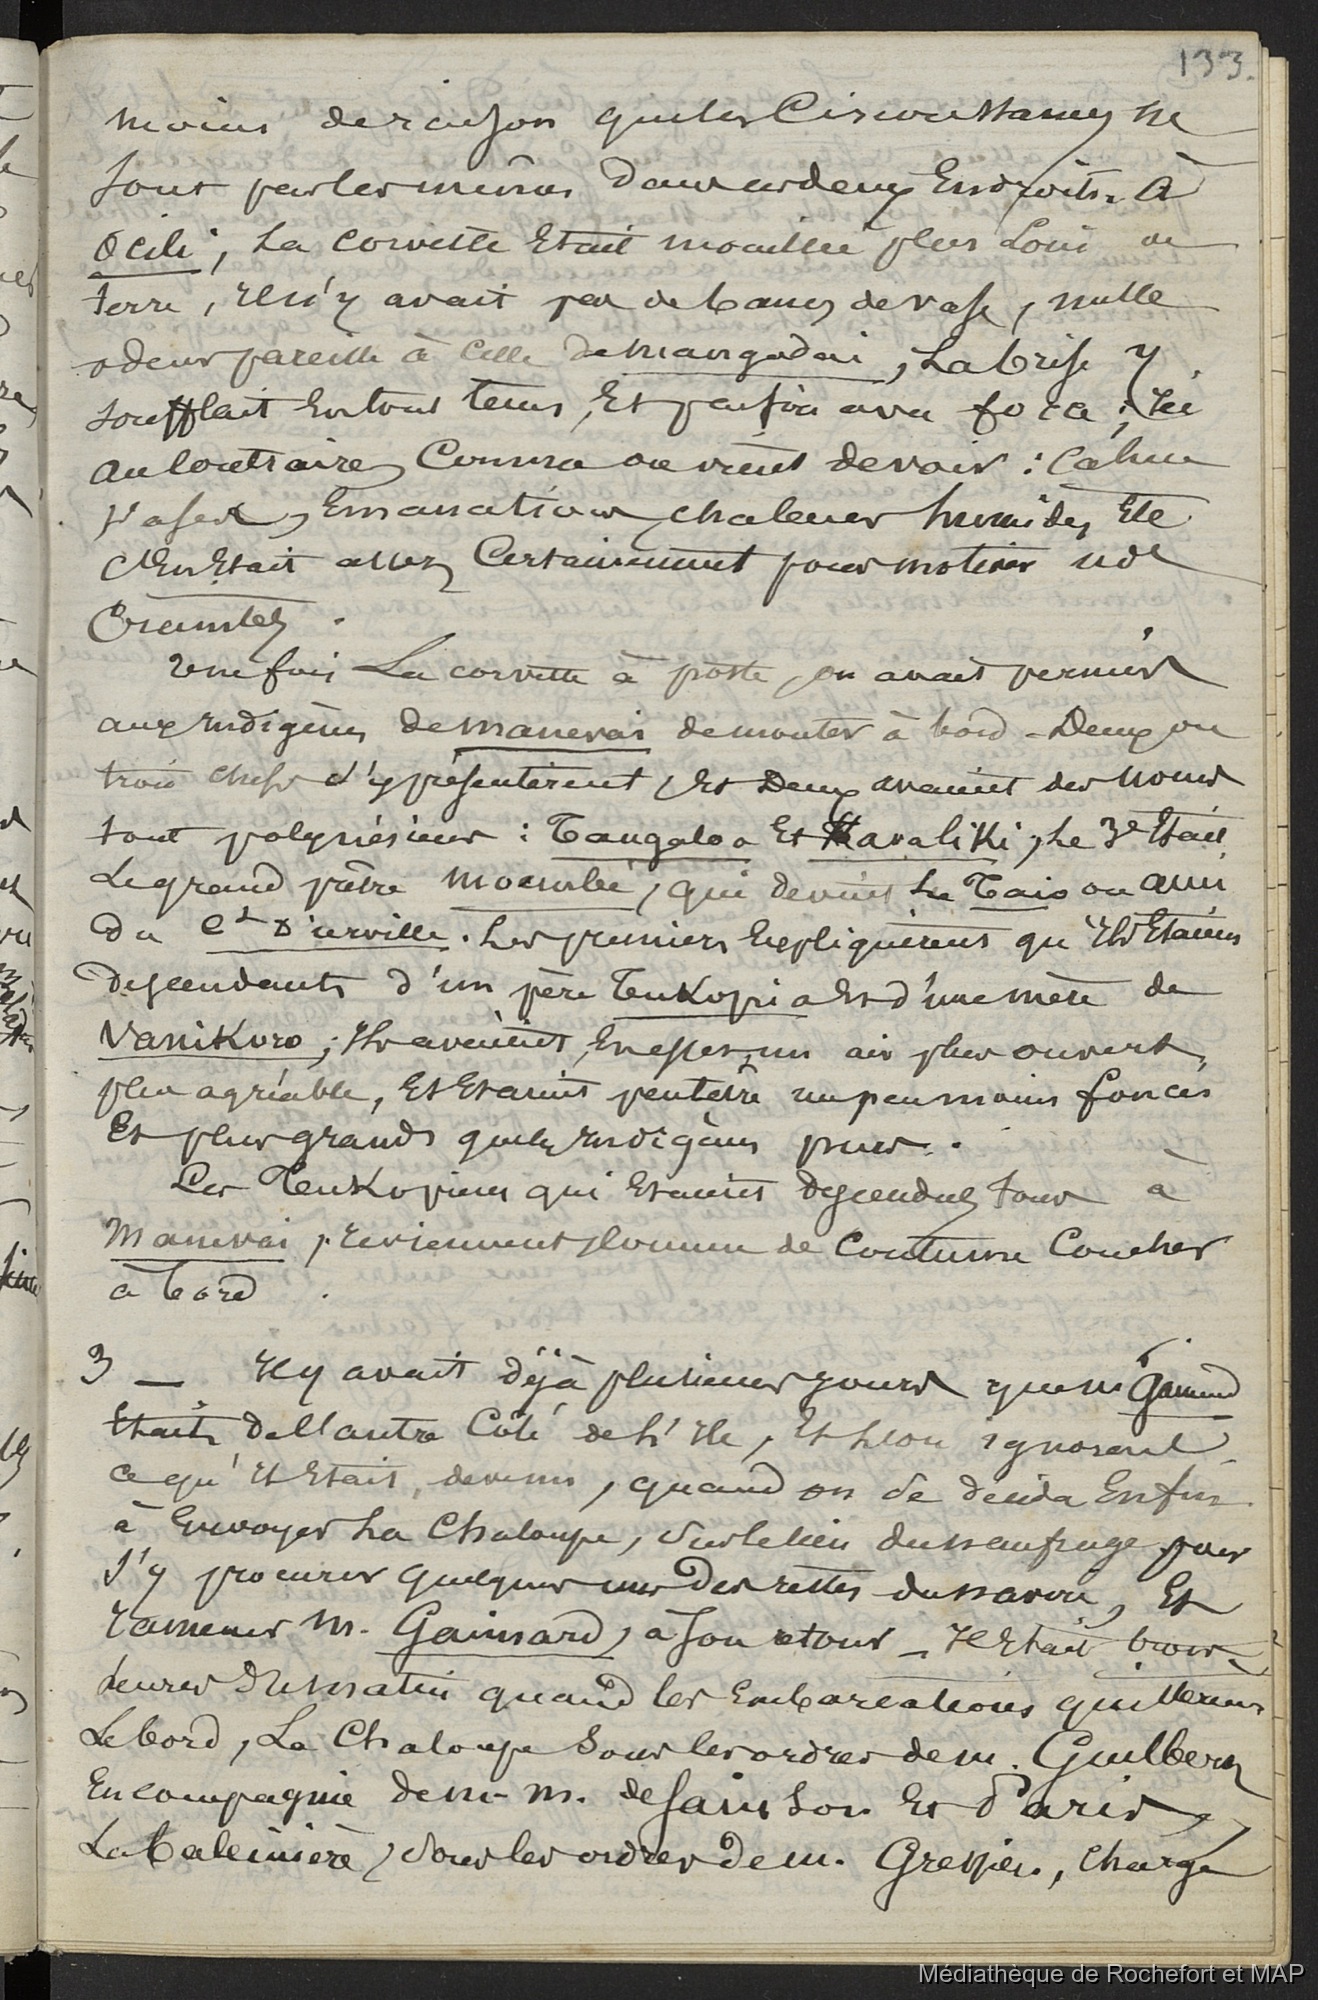 133.
moins de raison que les Circonstances ne
sont pas les mêmes dans ces deux Endroits. à
Ocili, La corvette Etait mouillée plus Loin de
terre, Il n'y avait pas de bancs de vase, nulle
odeur pareille à celle de mangadai, La brise y
soufflait En tous tems, Et parfois avec force; Ici
au Contraire, Comme on vient de voir : Calme
vases, Emanations, chaleur humide, Etc
C'En Etait assez Certainement pour motiver nos
Craintes.
Une fois La corvette à poste, on avait permis
aux Indigènes de manevai de monter à bord. Deux ou
trois chefs s'y présentèrent, Et Deux avaient des noms
tout polynésiens : Tangaloa Et Kavaliki, Le 3e Etait
Le grand prêtre moembé, qui devint Le Taio ou ami
du Ct D'urville. Les premiers Expliquèrent qu'Ils Etaient
Descendants d'un père Teukopia Et d'une mère de
Vanikoro; Ils avaient, En effet, un air plus ouvert,
plus agréable, Et Etaient peutetre un peu moins foncés
Et plus grands que les Indigènes purs.
Les Teukopiens qui Etaient Descendus tous à
Manevai, reviennent comme de Coutume Coucher
à bord.
3 — Il y avait déjà plusieurs jours que m Gaimard
Etait De l'autre Côté de L'Ile, Et L'on ignorait
ce qu'Il Etait devenu, quand on se décida Enfin
à Envoyer La Chaloupe, sur le lieu du naufrage pour
s'y procurer quelques uns Des restes du navire, Et
ramener M. Gaimard, à son retour _ Il Etait trois
heures Du matin quand les Embarcations quittèrent
Le bord, La Chaloupe Sous les ordres de m. Guilbert
En compagnie de m. m. de Sainson Et Paris,
La baleinière, sous les ordres de m. Gressien, Chargé
Médiathèque de Rochefort et MAP